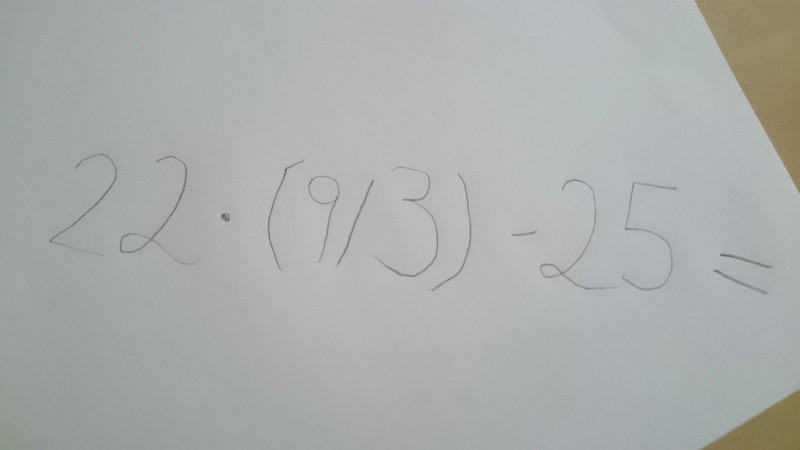 22 · (9/3) - 25 =